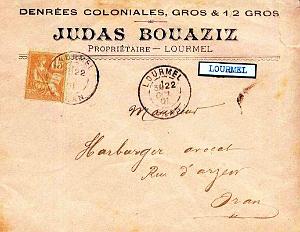 DENRÉES COLONIALES, GROS & 1/2 GROS
JUDAS BOUAZIZ
PROPRIÉTAIRE - LOURMEL
LOURMEL
LOURMEL
22
01
15
22
ORAN
Monsieur
Harburger avocat
Rue d'arzew
Oran